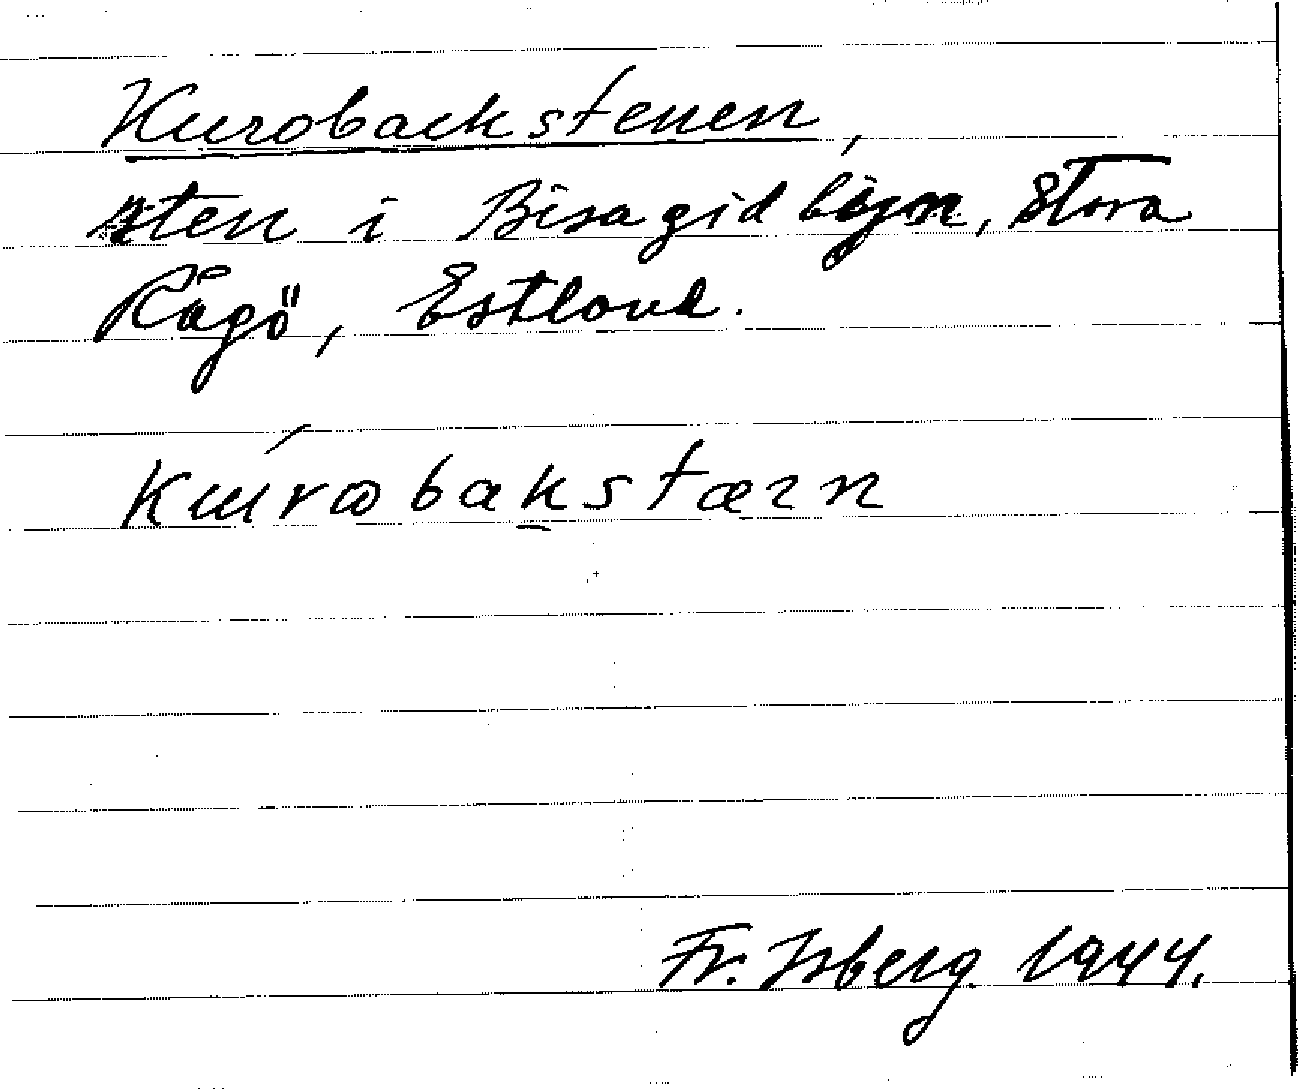 Kurobackstenen,
sten i Bisagid byn, Stora
Rågö, Estland.
Kɯ́rωbakstærn
Fr. Isberg 1944.